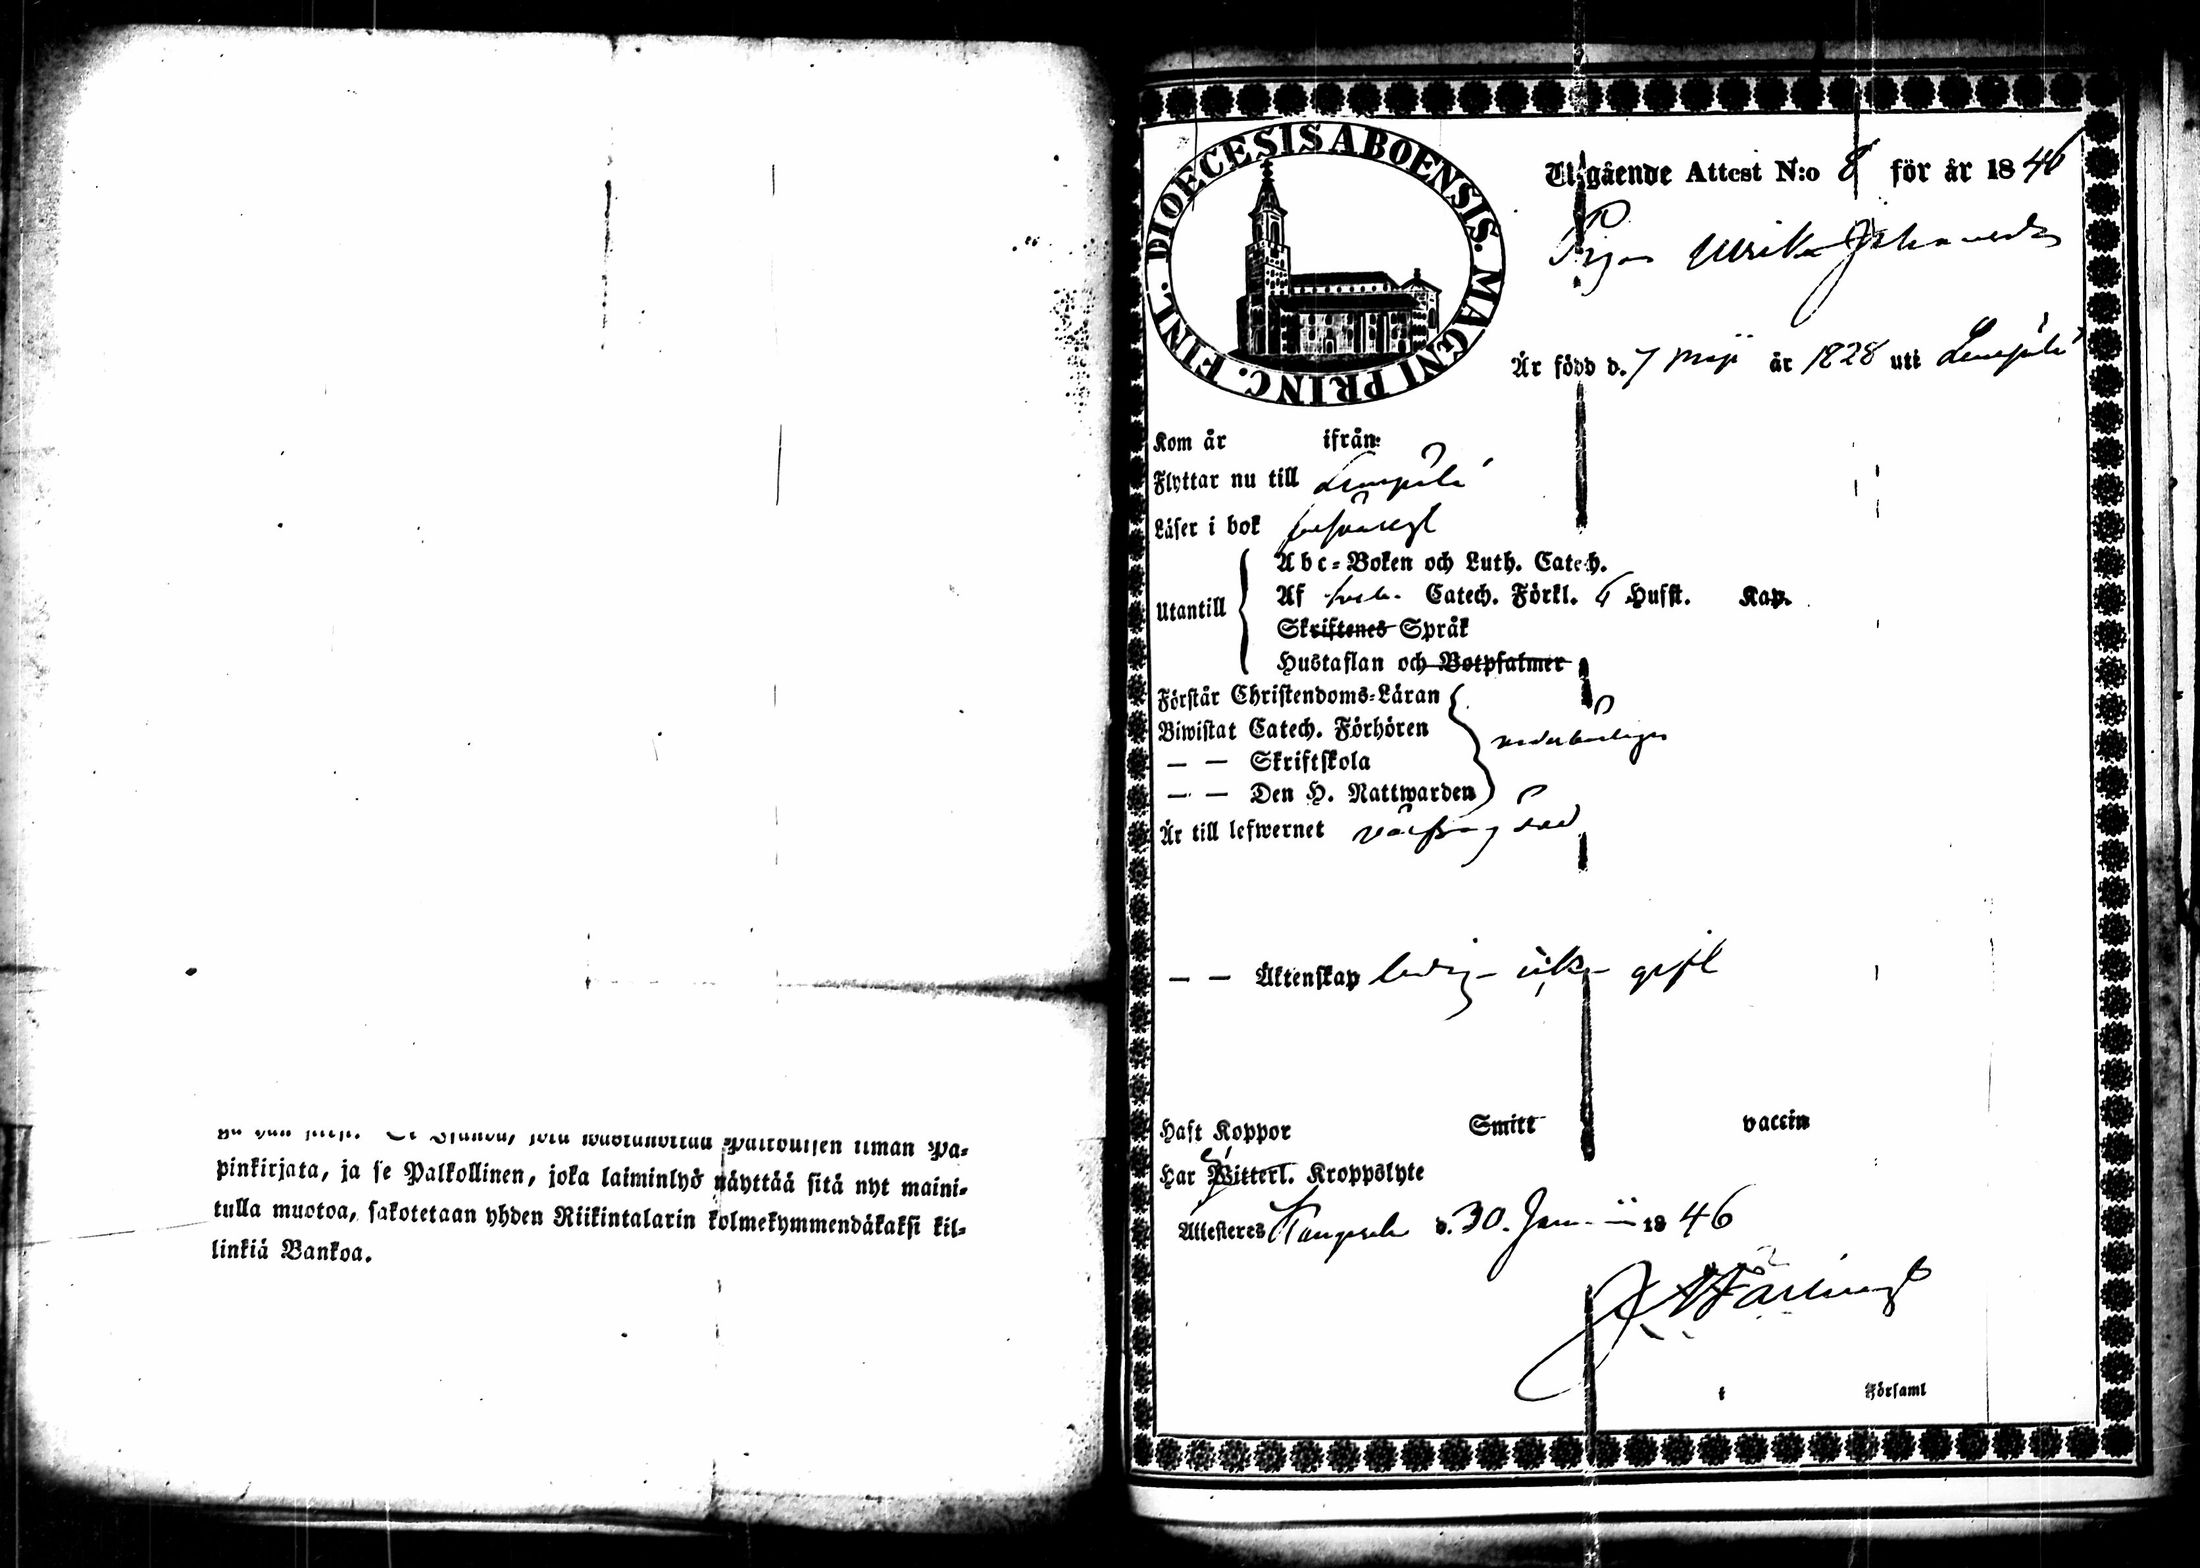 pinkirjata, ja se Palkollinen, joka laiminlyö näyttää sitä nyt maini-
tulla muotoa, sakotetaan yhden Riikintalarin kolmekymmendäkaksi kil-
linkiä Bankoa.
DIOECESIS ABOENSIS. MAGNI PRINC. FINL.
Utgående Attest N:o 8 för år 1846
Pigan Ulrika Johansdr
Är född d. 7 Maji år 1828 uti Lempälä
Kom år ifrån
Flyttar nu till Lempälä
Läser i bok försvarligt
Utantill
Abc-Boken och Luth. Catech.
Af Catech. Förkl. 6 Hufst. Kap.
Skriftenes Språk
Hustaflan och Botpsalmer
Förstår Christendoms-Läran
Biwistat Catech. Förhören
— — Skriftskola
— — Den H. Nattwarden
vederbörligen
Är till lefwernet
— — Äktenskap ledig gift
Haft Koppor Smitt vaccin
Har Witterl. Kroppslyte
Attesteres Kangasala d. 30. Januarii 1846
i Församl